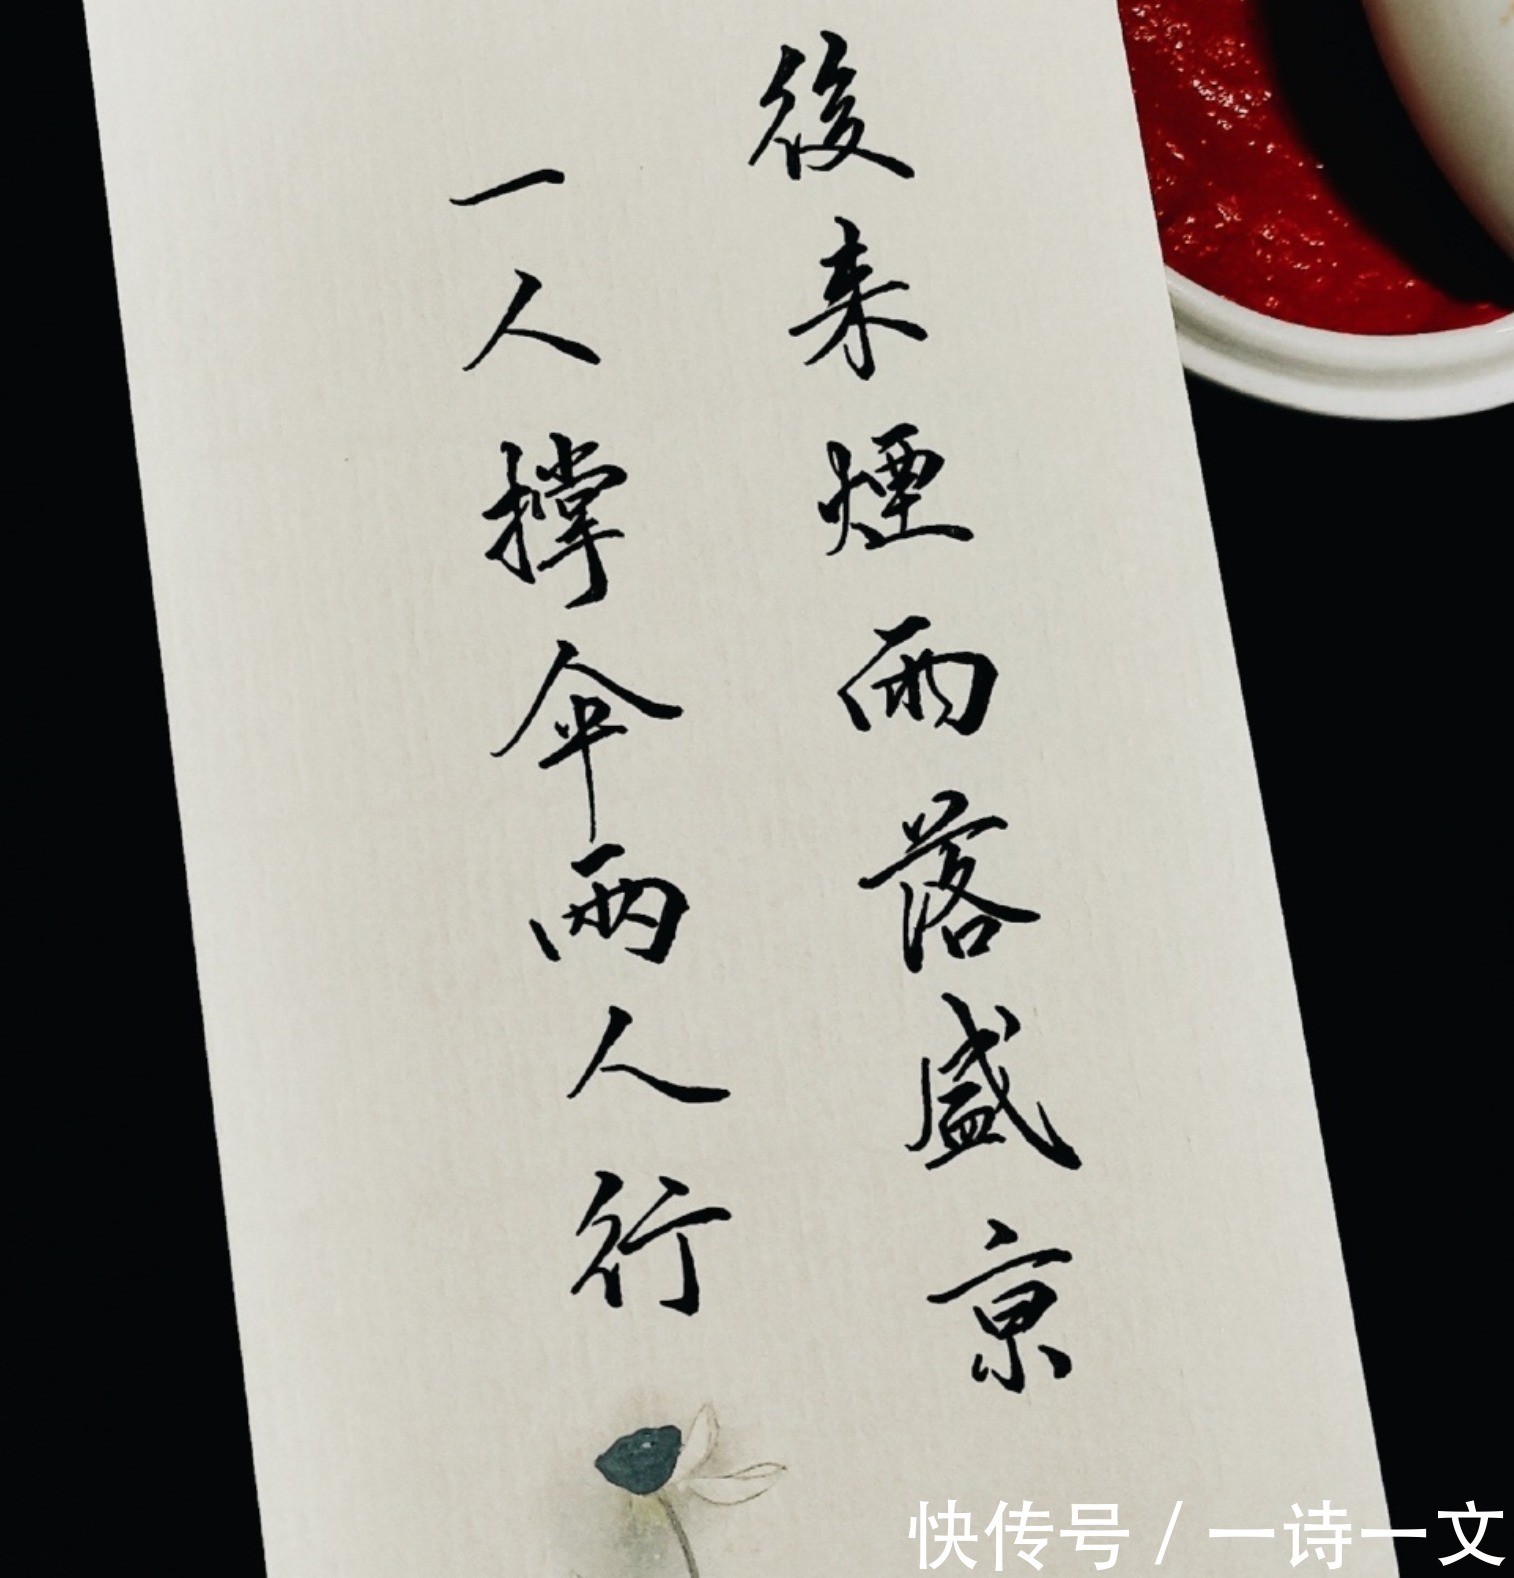 後来煙雨落盛京
一人撑伞兩人行
快传号/一诗一文